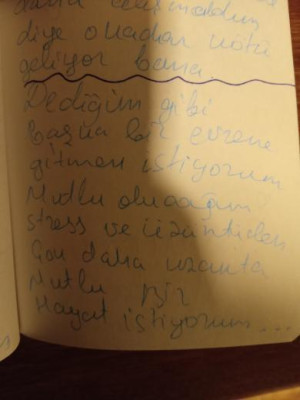 daha
diye o kadar kötü
geliyor bana.
Dediğim gibi
başka bir evrene
gitmek istiyorum
Mutlu olucağım
stress ve üzüntüden
Çou daha uzakta
Mutlu Bir
Hayat istiyorum...